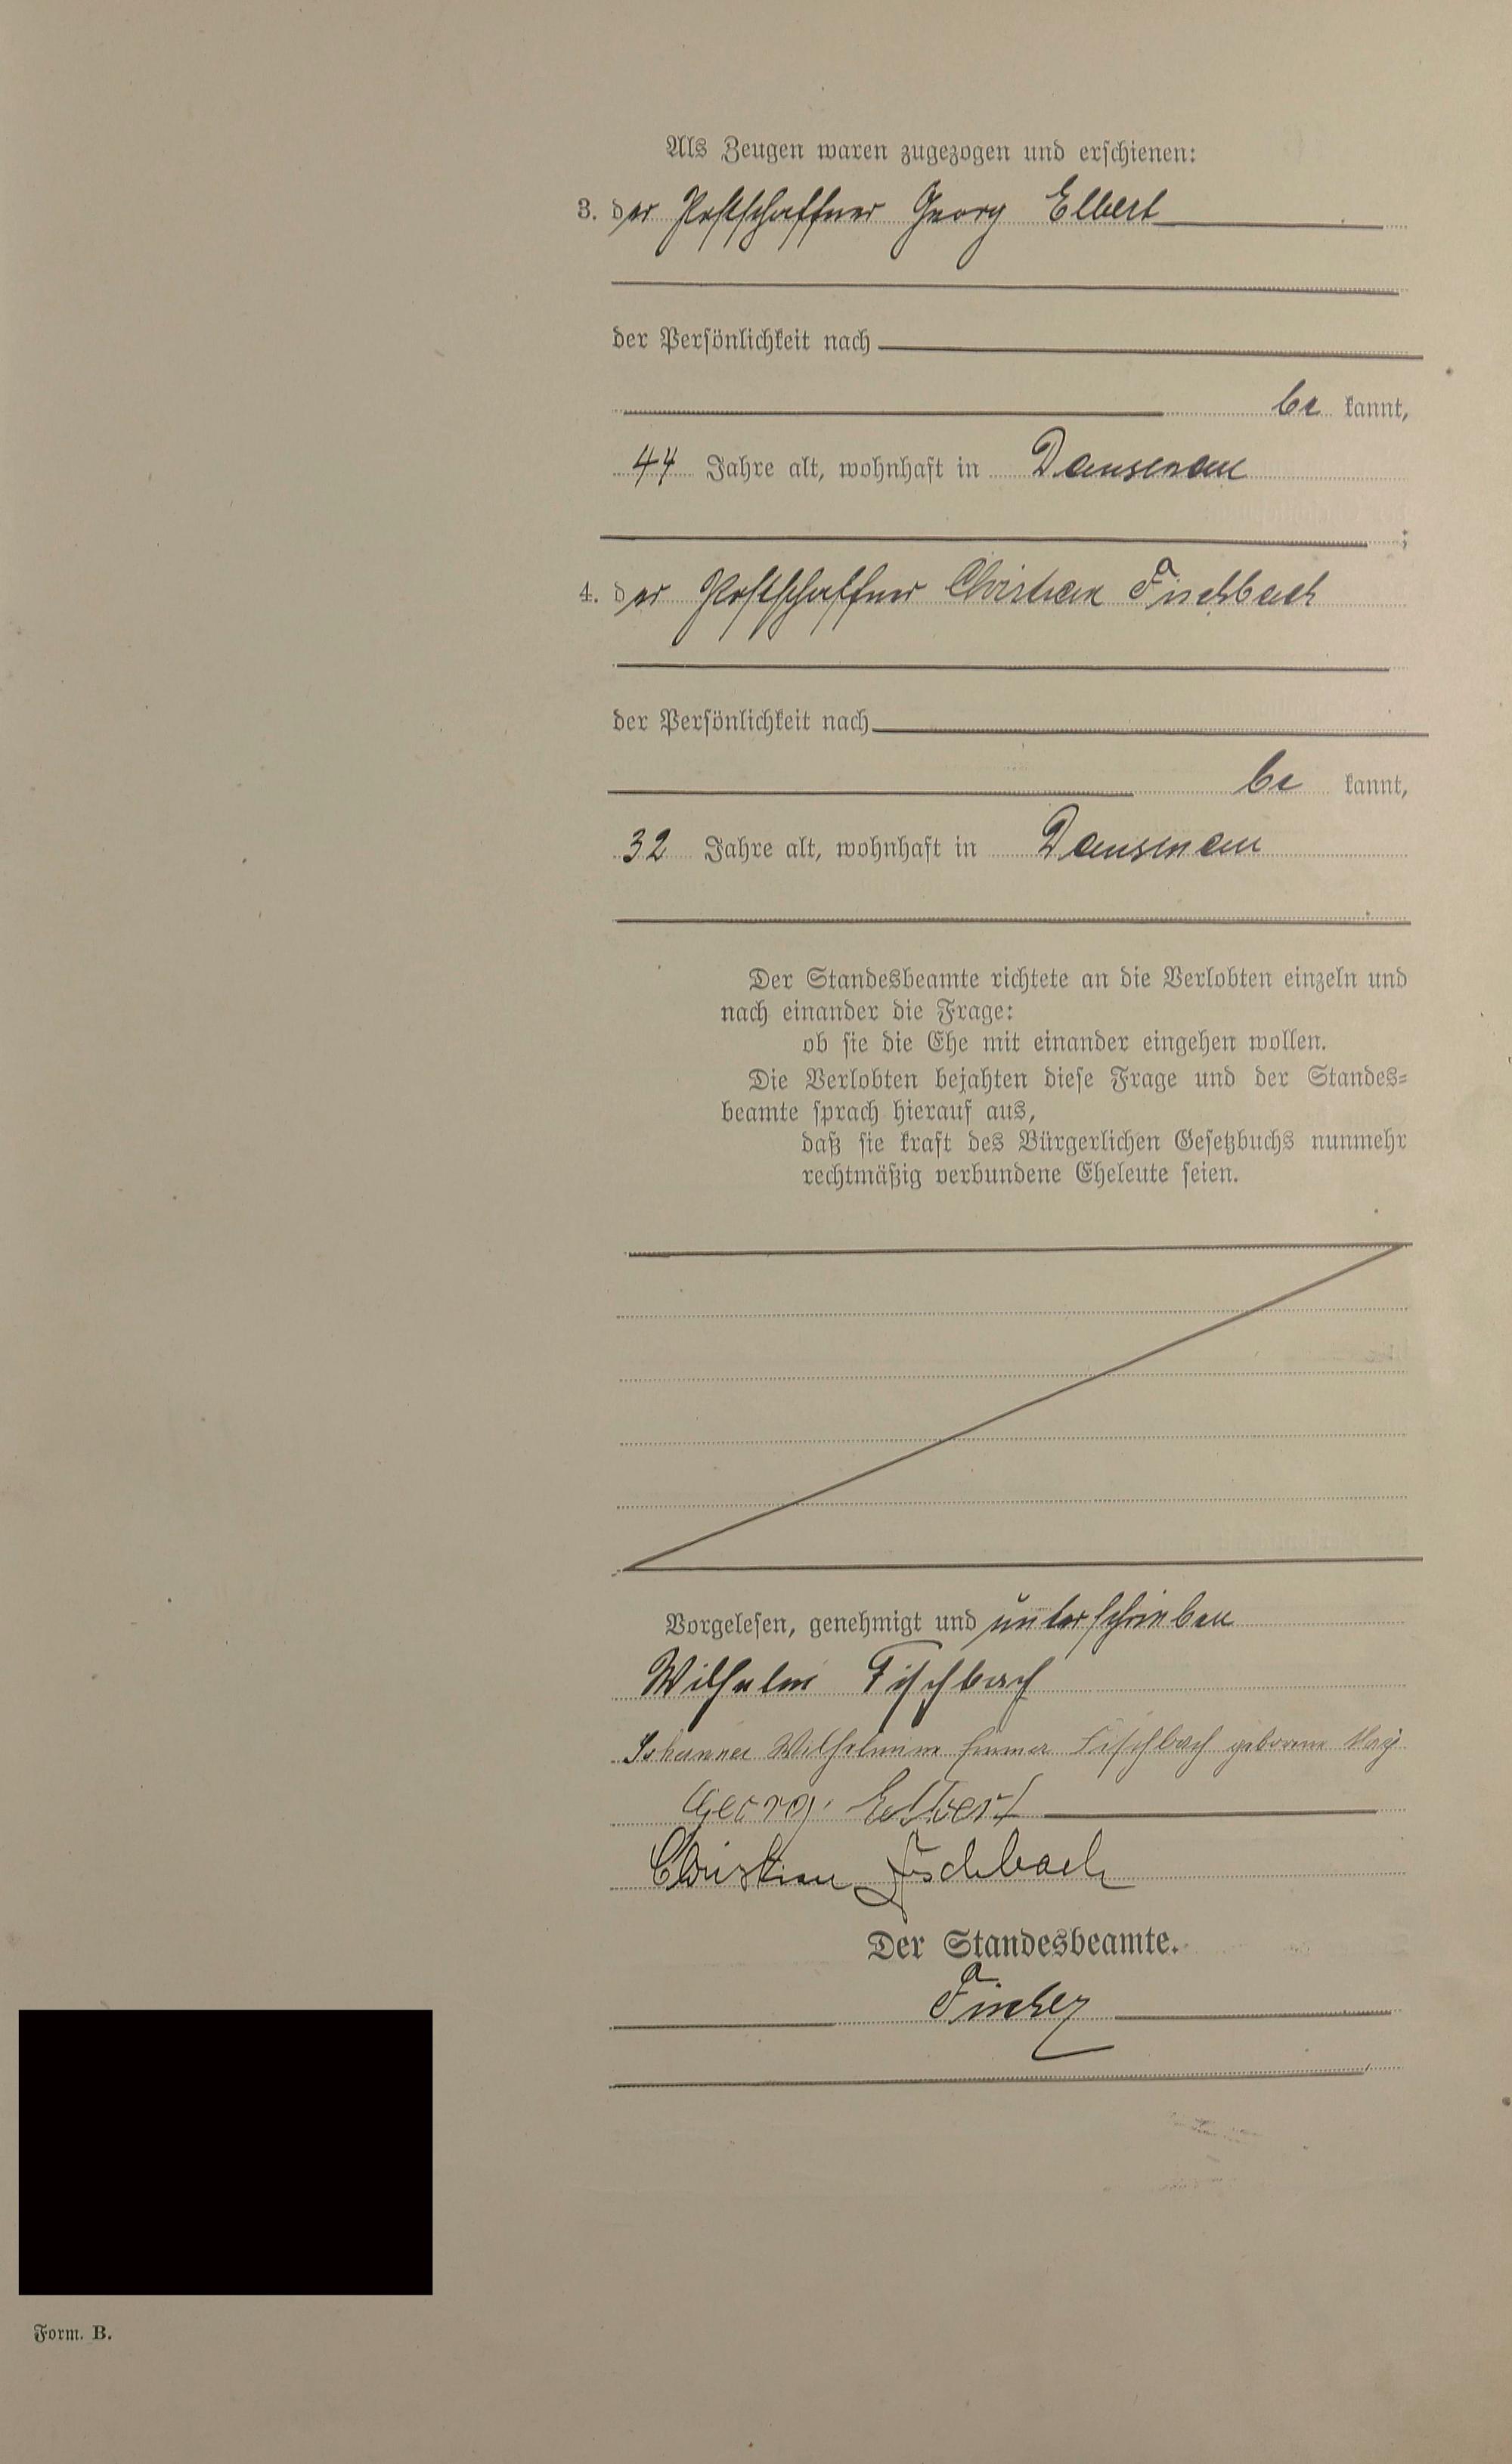 Als Zeugen waren zugezogen und erschienen:
3. der Postschaffner Georg Elbert
der Persönlichkeit nach
be kannt,
44 Jahre alt, wohnhaft in Dausenau
;
4. der Postschaffner Christian Fischbach
der Persönlichkeit nach
be kannt,
32 Jahre alt, wohnhaft in Dausenau
Der Standesbeamte richtete an die Verlobten einzeln und
nach einander die Frage:
ob sie die Ehe mit einander eingehen wollen.
Die Verlobten bejahten diese Frage und der Standes=
beamte sprach hierauf aus,
daß sie kraft des Bürgerlichen Gesetzbuchs nunmehr
rechtmäßig verbundene Eheleute seien.
Vorgelesen, genehmigt und unterschrieben
Wilhelm Fischbach
Johanna Wilhelmine Emma Fischbach geborene
Georg Elbert
Christian Fischbach
Der Standesbeamte.
Form. B.